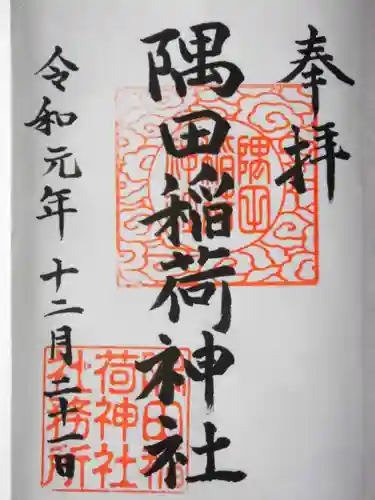 奉拝
隅田稲荷神社
令和元年十二月二十一日
隅田稲荷神社
隅田稲荷神社社務所